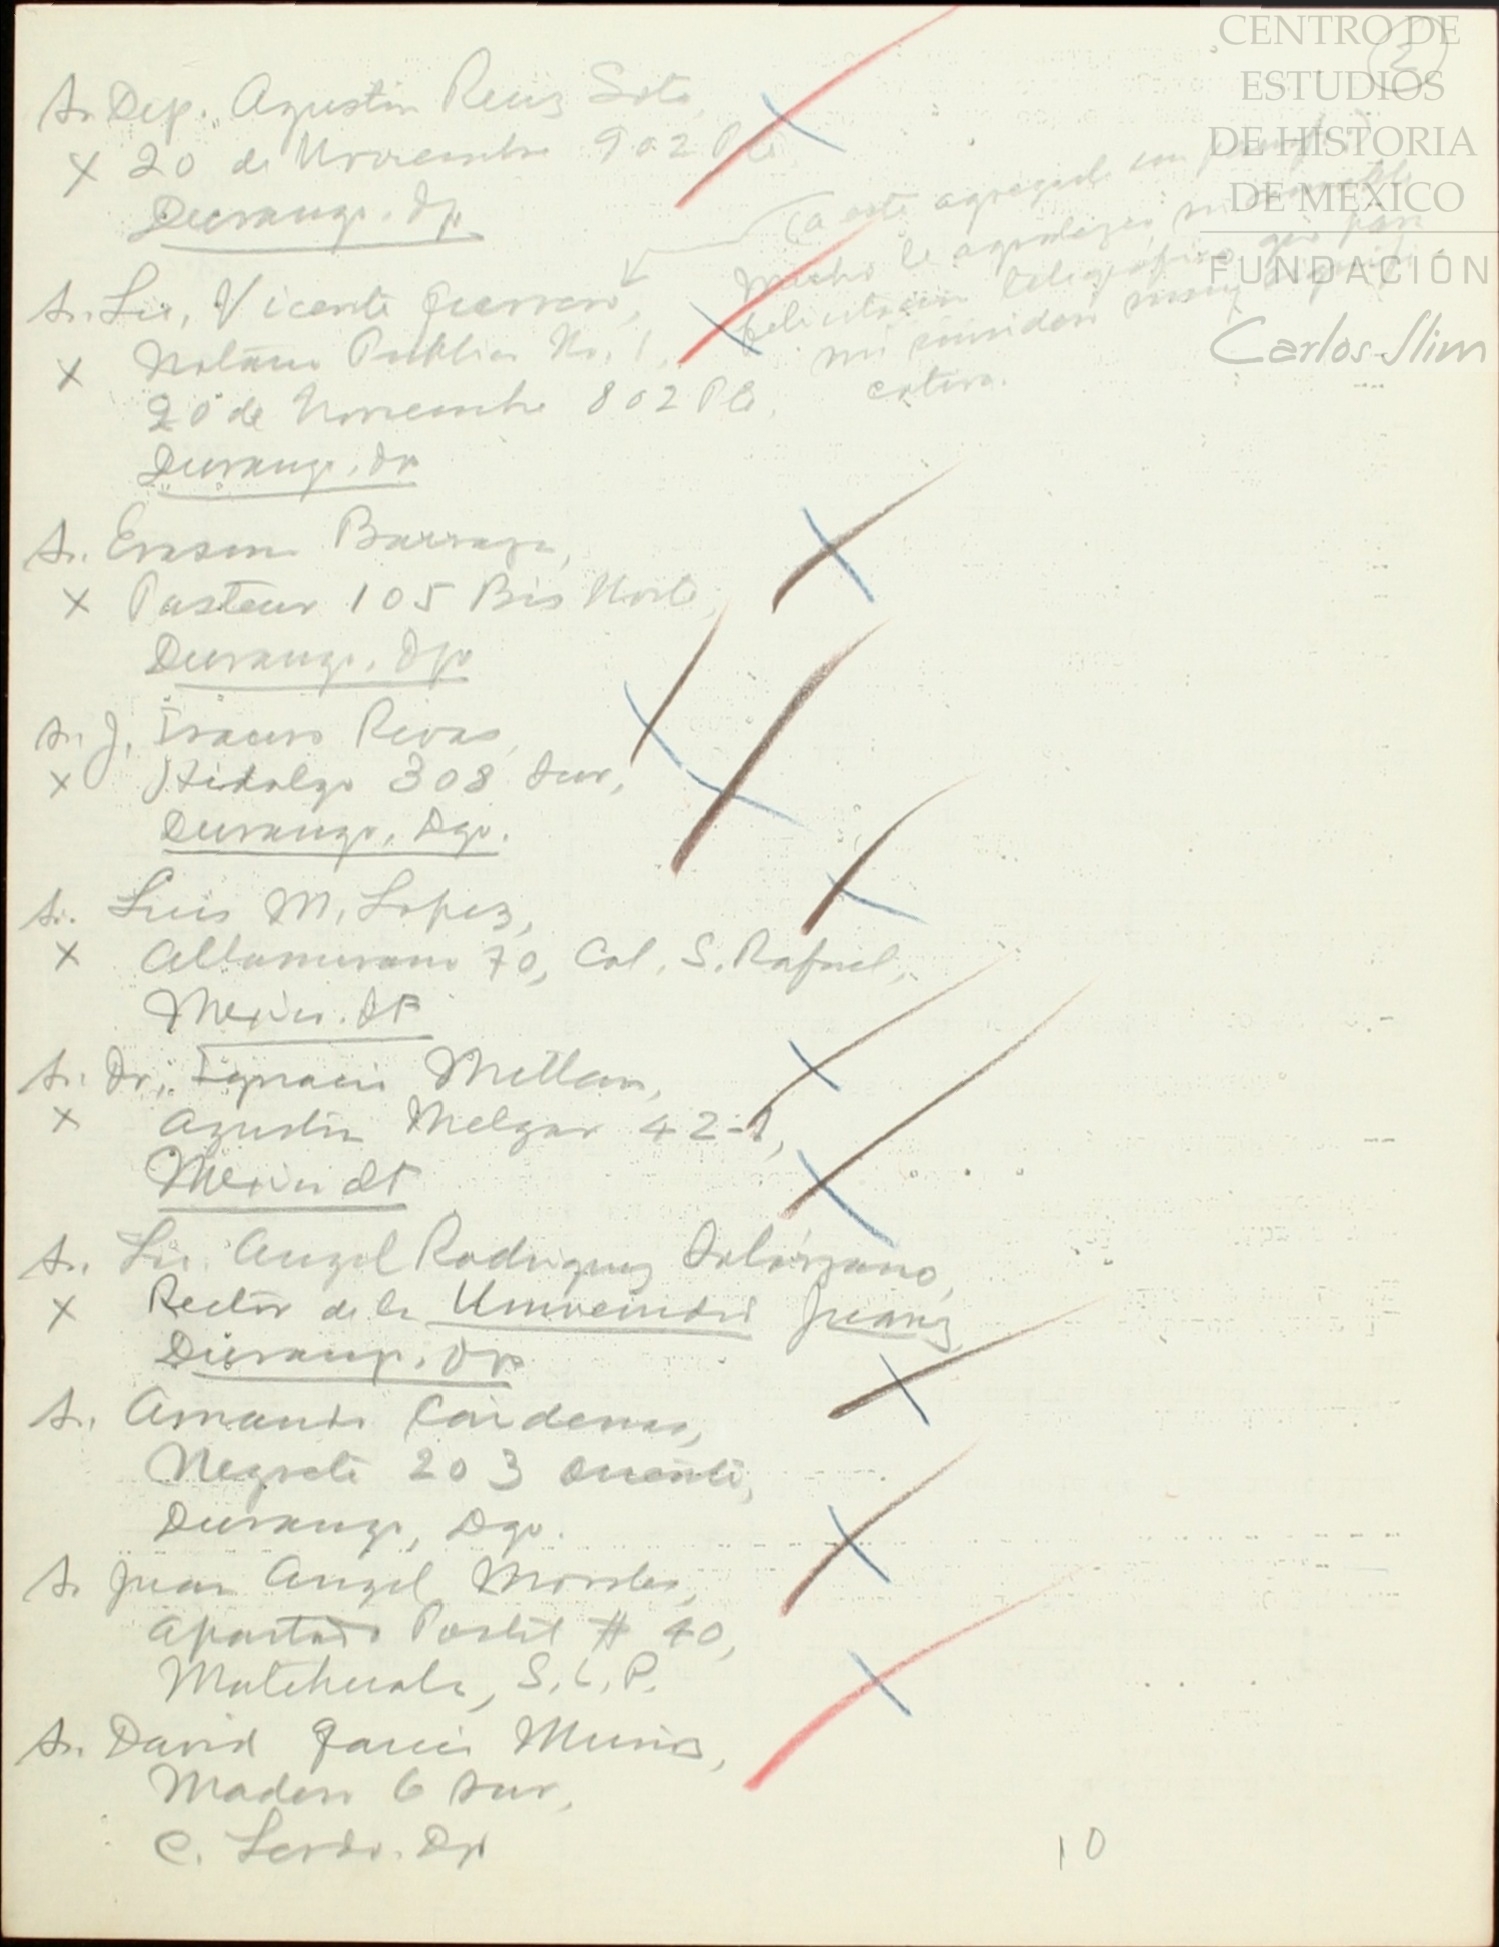 CENTRO DE
ESTUDIOS
DE HISTORIA
DE MEXICO
FUNDACIÓN
Carlos Slim
(2)
Sr. Dip. Agustin Ruiz Soto
X 20 de Noviembre 902 Pte
Durango, Dgo.
(a este agregarle un
Mucho le agradezco su
felicitación telegráfica que para
mi considero muy
Sr. Lic. Vicente Guerrero,
X Notario Publico No. 1,
20 de Noviembre 802 Pte.
Durango, Dgo
Sr. Erasmo Barraza,
X Pasteur 105 Bis Norte,
Durango, Dgo
Sr. J. Rivas,
X Hidalgo 308 Sur,
Durango, Dgo.
Sr. Luis M. Lopez,
X Altamirano 70, Col. S. Rafael,
Mexico. DF
Sr. Dr. Ignacio Millan,
X Agustin Melgar 42-1,
Mexico DF
Sr. Lic. Angel Rodriguez Solórzano,
X Rector de la Universidad Juarez
Durango, Dgo
Sr. Armando Cárdenas,
Negrete 203 Oriente,
Durango, Dgo.
Sr Juan Angel Morales,
Apartado Postal # 40,
Matehuala, S.L.P.
Sr. David Garcia Muñoz,
Madero 6 Sur,
C. Lerdo. Dgo
10